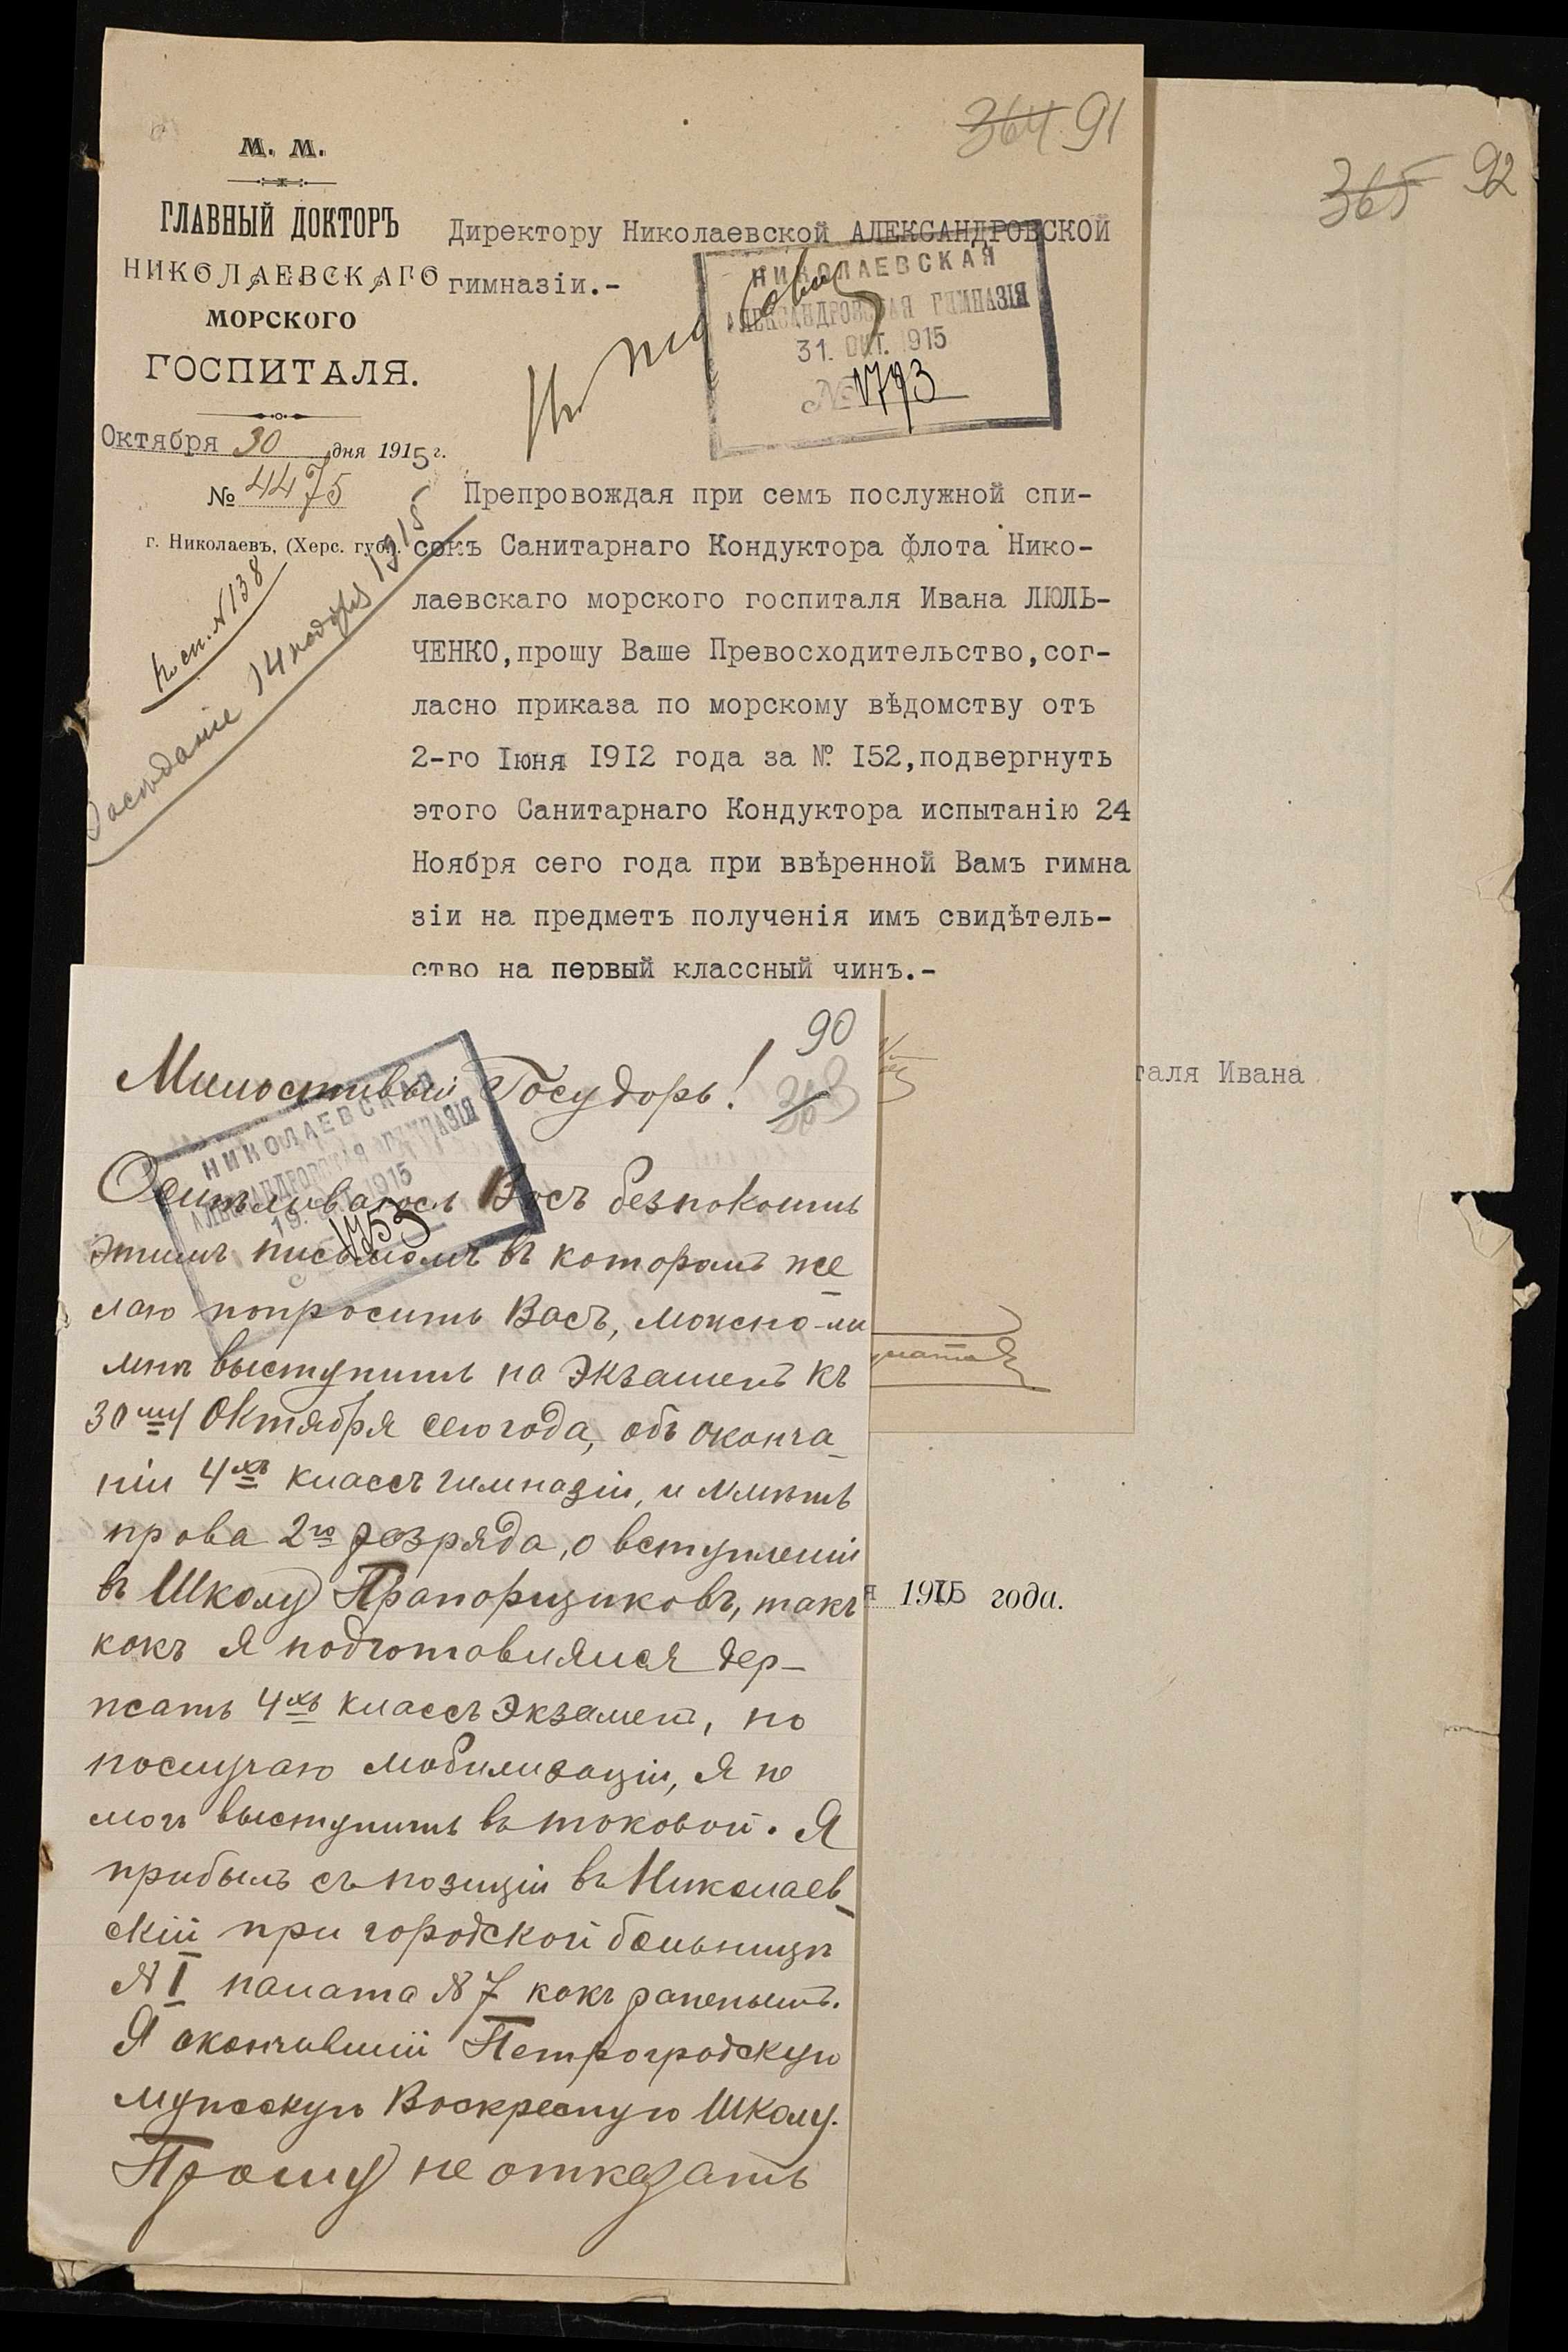 364 91
М. М.
ГЛАВНЫЙ ДОКТОРЪ
НИКОЛАЕВСКАГО
МОРСКОГО
ГОСПИТАЛЯ.
Октября 30 дня 1915 г.
№ 4475
г. Николаевъ, (Херс. губ.).
Директору Николаевской АЛЕКСАНДРОВСКОЙ
гимназіи.-
НИКОЛАЕВСКАЯ
АЛЕКСАНДРОВСКАЯ ГИМНАЗІЯ
31. ОКТ. 1915
№ 1793
№ 138
14 ноября 1915
Препровождая при семъ послужной спи-
сокъ Санитарнаго Кондуктора флота Нико-
лаевскаго морского госпиталя Ивана ЛЮЛЬ-
ЧЕНКО,прошу Ваше Превосходительство,сог-
ласно приказа по морскому вѣдомству отъ
2-го Iюня I9I2 года за № I52,подвергнуть
этого Санитарнаго Кондуктора испытанію 24
Ноября сего года при ввѣренной Вамъ гимна
зіи на предметъ полученія имъ свидѣтель-
ство на первый классный чинъ.-
365 92
таля Ивана
я 1915 года.
90
363
Милостивый Государь!
НИКОЛАЕВСКАЯ
АЛЕКСАНДРОВСКАЯ ГИМНАЗІЯ
19. ОКТ. 1915
1753
Осмѣливаюсь Васъ безпокоить
этимъ письмомъ въ которомъ же
лаю попросить Васъ, можно-ли
мнѣ выступить на Экзаменъ къ
30му Октября сего года, объ оконча-
ніи 4хъ классъ гимназіи, и имѣть
права 2го розряда, о вступленіи
въ Школу Прапорщиковъ, такъ
какъ я подготовлялся дер-
жать 4хъ классъ Экзаменъ, но
послучаю мобилизаціи, я не
могъ выступить въ таковой. Я
прибылъ съ позиціи въ Николаев-
скій при городской больницѣ
№ I палата № 7 какъ раненымъ.
Я окончившій Петроградскую
мужскую Воскресную Школу.
Прошу не отказать